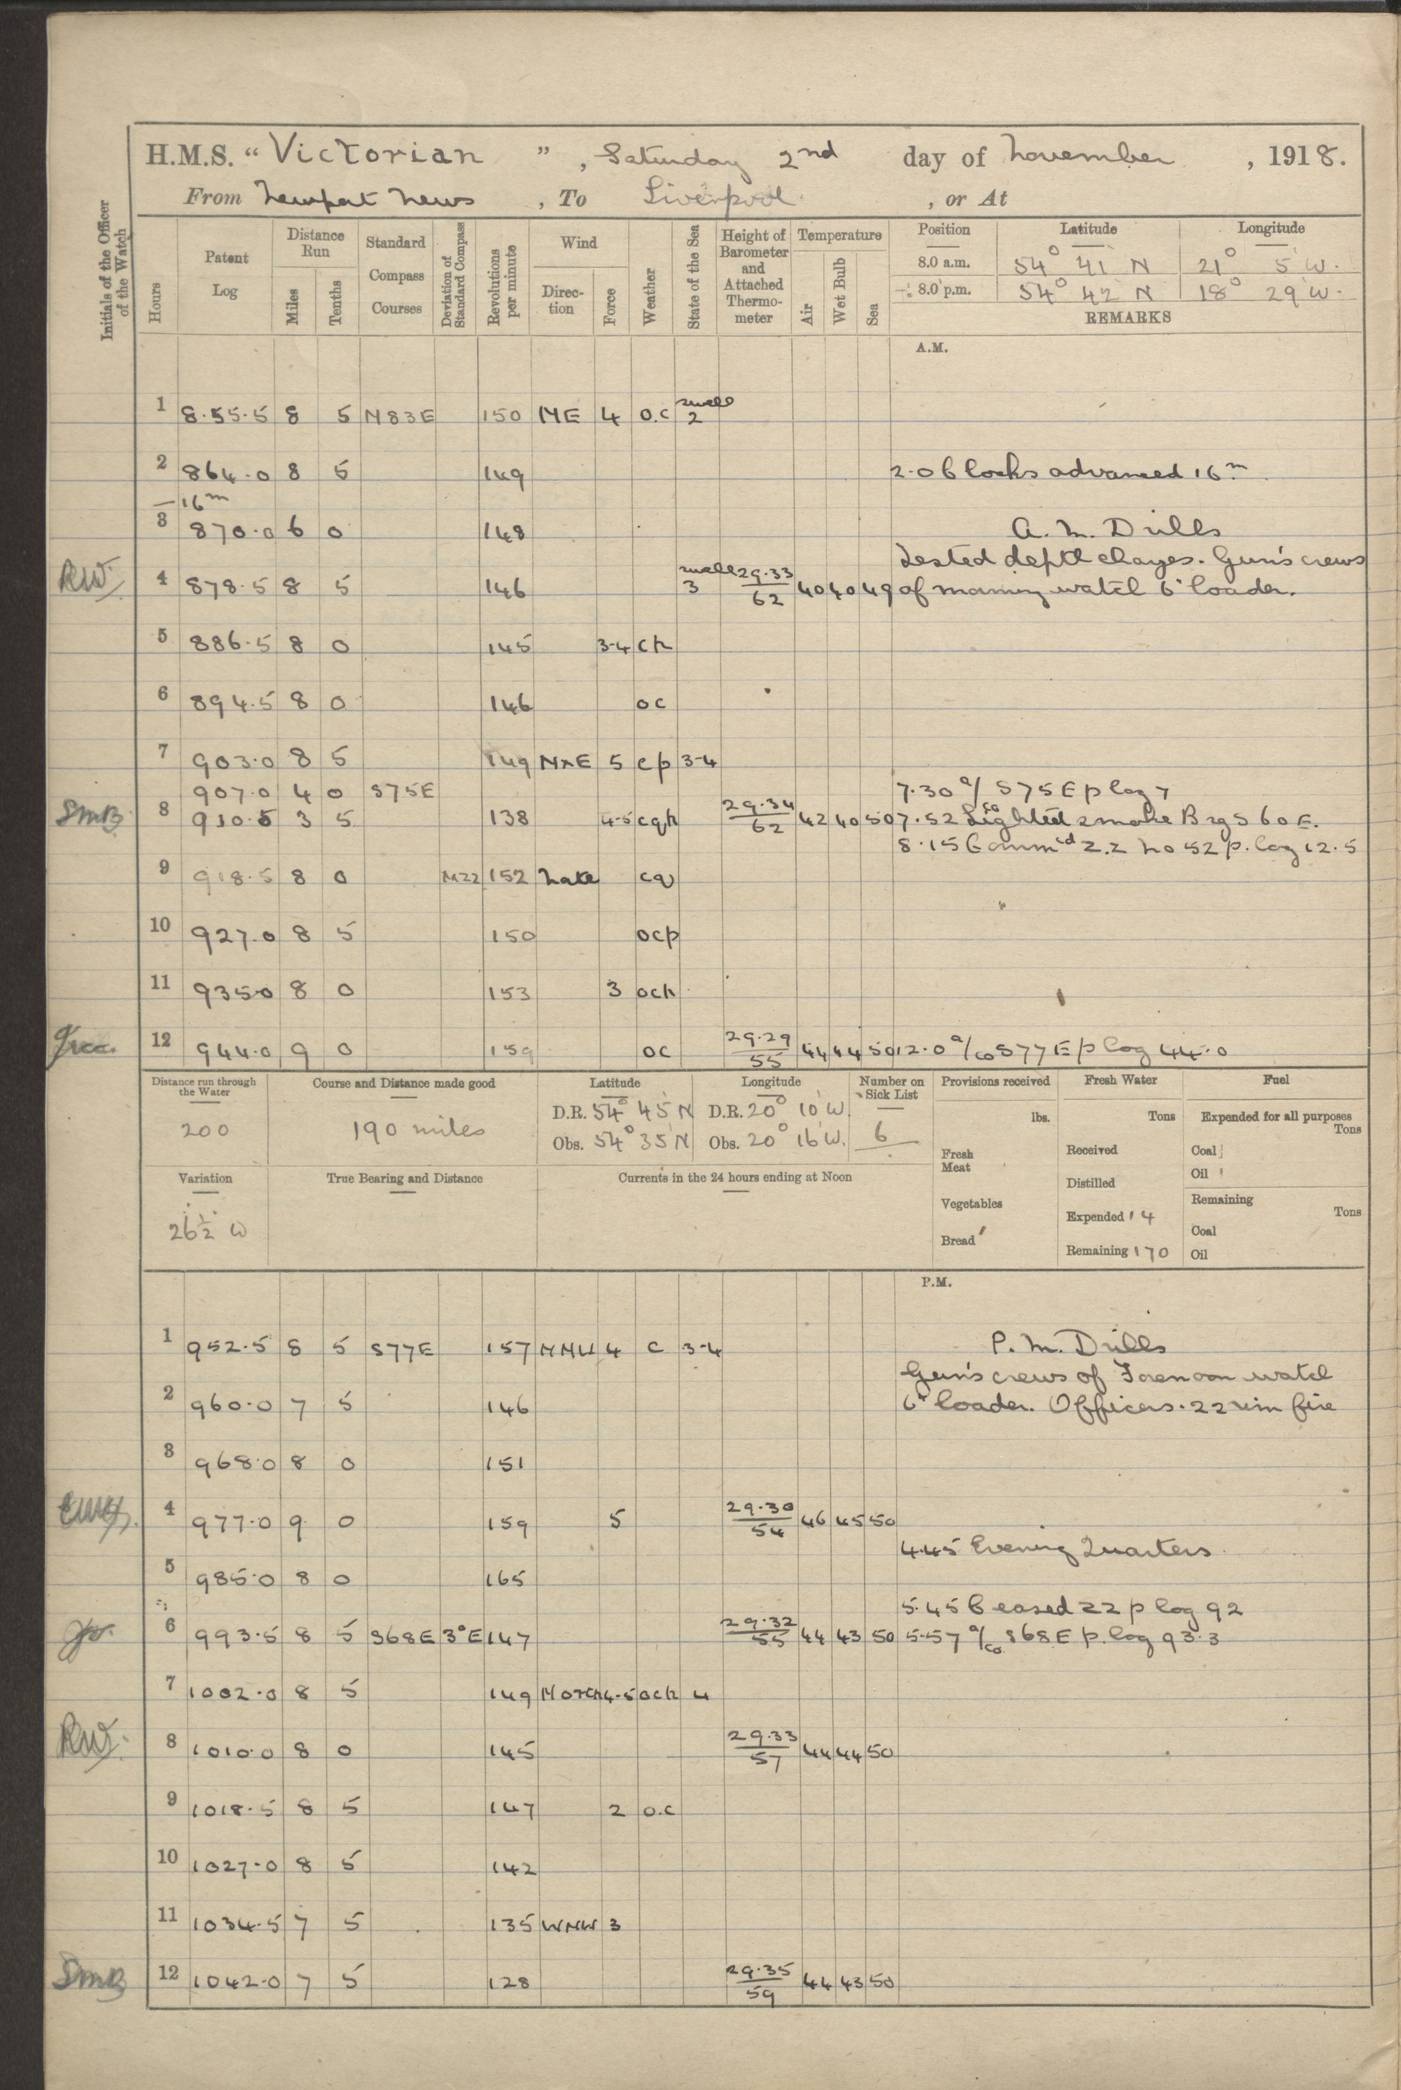 H.M.S. “ Victorian ” , Saturday 2nd day of November , 1918.
From Newport News , To Liverpool , or At
Initials of the Officer of the Watch
Hours
Patent Log
Distance Run
Miles
Tenths
Standard Compass Courses
Deviation of Standard Compass
Revolutions per minute
Wind
Direction
Force
Weather
State of the Sea
Height of Barometer and Attached Thermometer
Temperature
Air
Wet Bulb
Sea
Position Latitude Longitude
8.0 a.m. 54° 41 N 21° 5' W.
8.0 p.m. 54° 42 N 18° 29' W.
REMARKS
A.M.
1 8.55.5 8 5 N83E 150 NE 4 o.c swell 2
2 864.0 8 5 149 2.0 Clocks advanced 16m
—16m
3 870.0 6 0 148 A.M. Drills
Tested depth charges. Gun's crews
RW. 4 878.5 8 5 146 swell 3 29.33/62 40 40 49 of morning watch 6" loader.
5 886.5 8 0 145 3-4 ch
6 894.5 8 0 146 oc
7 903.0 8 5 149 NxE 5 cp 3-4
907.0 4 0 S75E 7.30 a/ S75E p log 7
SmB 8 910.5 3 5 138 4-5 cqh 29.34/62 42 40 50 7.52 Sighted smoke Brg S 60 E.
8.15 Comm'cd ZZ No 52 p. log 12.5
9 918.5 8 0 MZZ 152 Nate cq
10 927.0 8 5 150 ocp
11 935.0 8 0 153 3 och
12 944.0 9 0 159 oc 29.29/55 44 44 50 12.0 a/co S77E p log 44.0
Distance run through the Water
200
Course and Distance made good
190 miles
Latitude
D.R. 54° 45' N
Obs. 54° 35' N
Longitude
D.R. 20° 10' W.
Obs. 20° 16' W.
Number on Sick List
6
Provisions received
lbs.
Fresh Meat
Vegetables
Bread
Fresh Water
Tons
Received
Distilled
Expended 14
Remaining 170
Fuel
Expended for all purposes
Tons
Coal
Oil
Remaining
Tons
Coal
Oil
Variation
26½ W
True Bearing and Distance
Currents in the 24 hours ending at Noon
P.M.
1 952.5 8 5 S77E 157 NNW 4 c 3-4 P.M. Drills
Gun's crews of Forenoon watch
2 960.0 7 5 146 6" loader. Officers .22 rim fire
3 968.0 8 0 151
4 977.0 9 0 159 5 29.30/54 46 45 50
4.45 Evening Quarters
5 985.0 8 0 165
5.45 Ceased ZZ p log 92
6 993.5 8 5 S68E 3°E 147 29.32/55 44 43 50 5.57 a/co S68E p. log 93.3
7 1002.0 8 5 149 North 4-5 och 4
RW. 8 1010.0 8 0 145 29.33/57 44 44 50
9 1018.5 8 5 147 2 o.c
10 1027.0 8 5 142
11 1034.5 7 5 135 WNW 3
SmB 12 1042.0 7 5 128 29.35/59 44 43 50